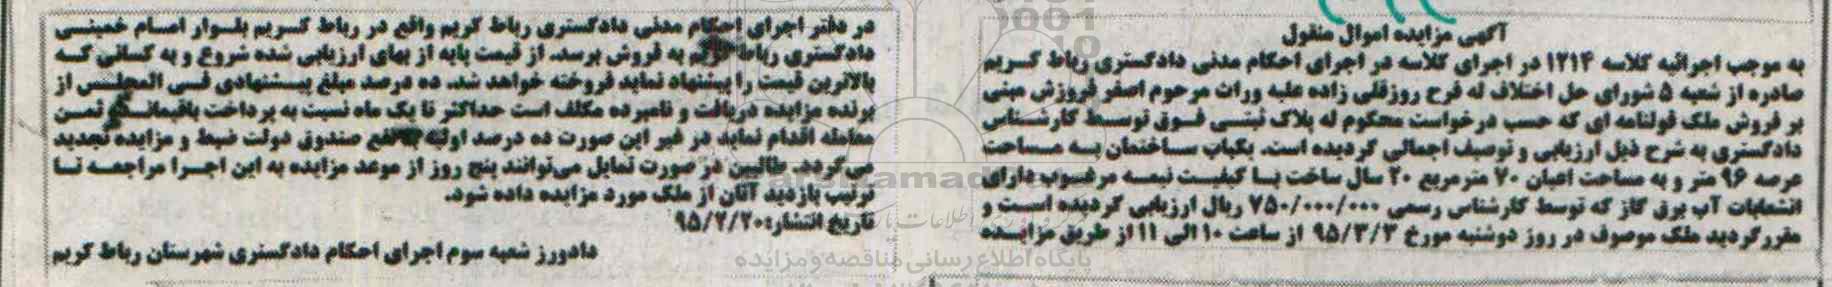 آگهی مزایده اموال منقول
به موجب اجرائیه کلاسه ۱۲۱۴ در اجرای کلاسه در اجرای احکام مدنی دادگستری رباط کریم
صادره از شعبه ۵ شورای حل اختلاف له فرح روزقلی زاده علیه وراث مرحوم اصغر فروزش مبنی
بر فروش ملک قولنامه ای که حسب درخواست محکوم له پلاک ثبتی فوق توسط کارشناس
دادگستری به شرح ذیل ارزیابی و توصیف اجمالی گردیده است. یکباب ساختمان به مساحت
عرصه ۹۶ متر و به مساحت اعیان ۷۰ مترمربع ۲۰ سال ساخت با کیفیت نیمه مرغوب دارای
انشعابات آب برق گاز که توسط کارشناس رسمی ۷۵۰/۰۰۰/۰۰۰ ریال ارزیابی گردیده است و
مقررگردید ملک موصوف در روز دوشنبه مورخ ۹۵/۳/۳ از ساعت ۱۰ الی ۱۱ از طریق مزایده
در دفتر اجرای احکام مدنی دادگستری رباط کریم واقع در رباط کریم بلوار امام خمینی
دادگستری رباط کریم به فروش برسد. از قیمت پایه از بهای ارزیابی شده شروع و به کسانی که
بالاترین قیمت را پیشنهاد نماید فروخته خواهد شد. ده درصد مبلغ پیشنهادی فی المجلس از
برنده مزایده دریافت و نامبرده مکلف است حداکثر تا یک ماه نسبت به پرداخت باقیمانده ثمن
معامله اقدام نماید در غیر این صورت ده درصد اولیه به نفع صندوق دولت ضبط و مزایده تجدید
می گردد. طالبین در صورت تمایل می‌توانند پنج روز از موعد مزایده به این اجرا مراجعه تا
ترتیب بازدید آنان از ملک مورد مزایده داده شود.
تاریخ انتشار: ۹۵/۲/۲۰
دادورز شعبه سوم اجرای احکام دادگستری شهرستان رباط کریم
پایگاه اطلاع رسانی مناقصه و مزایده